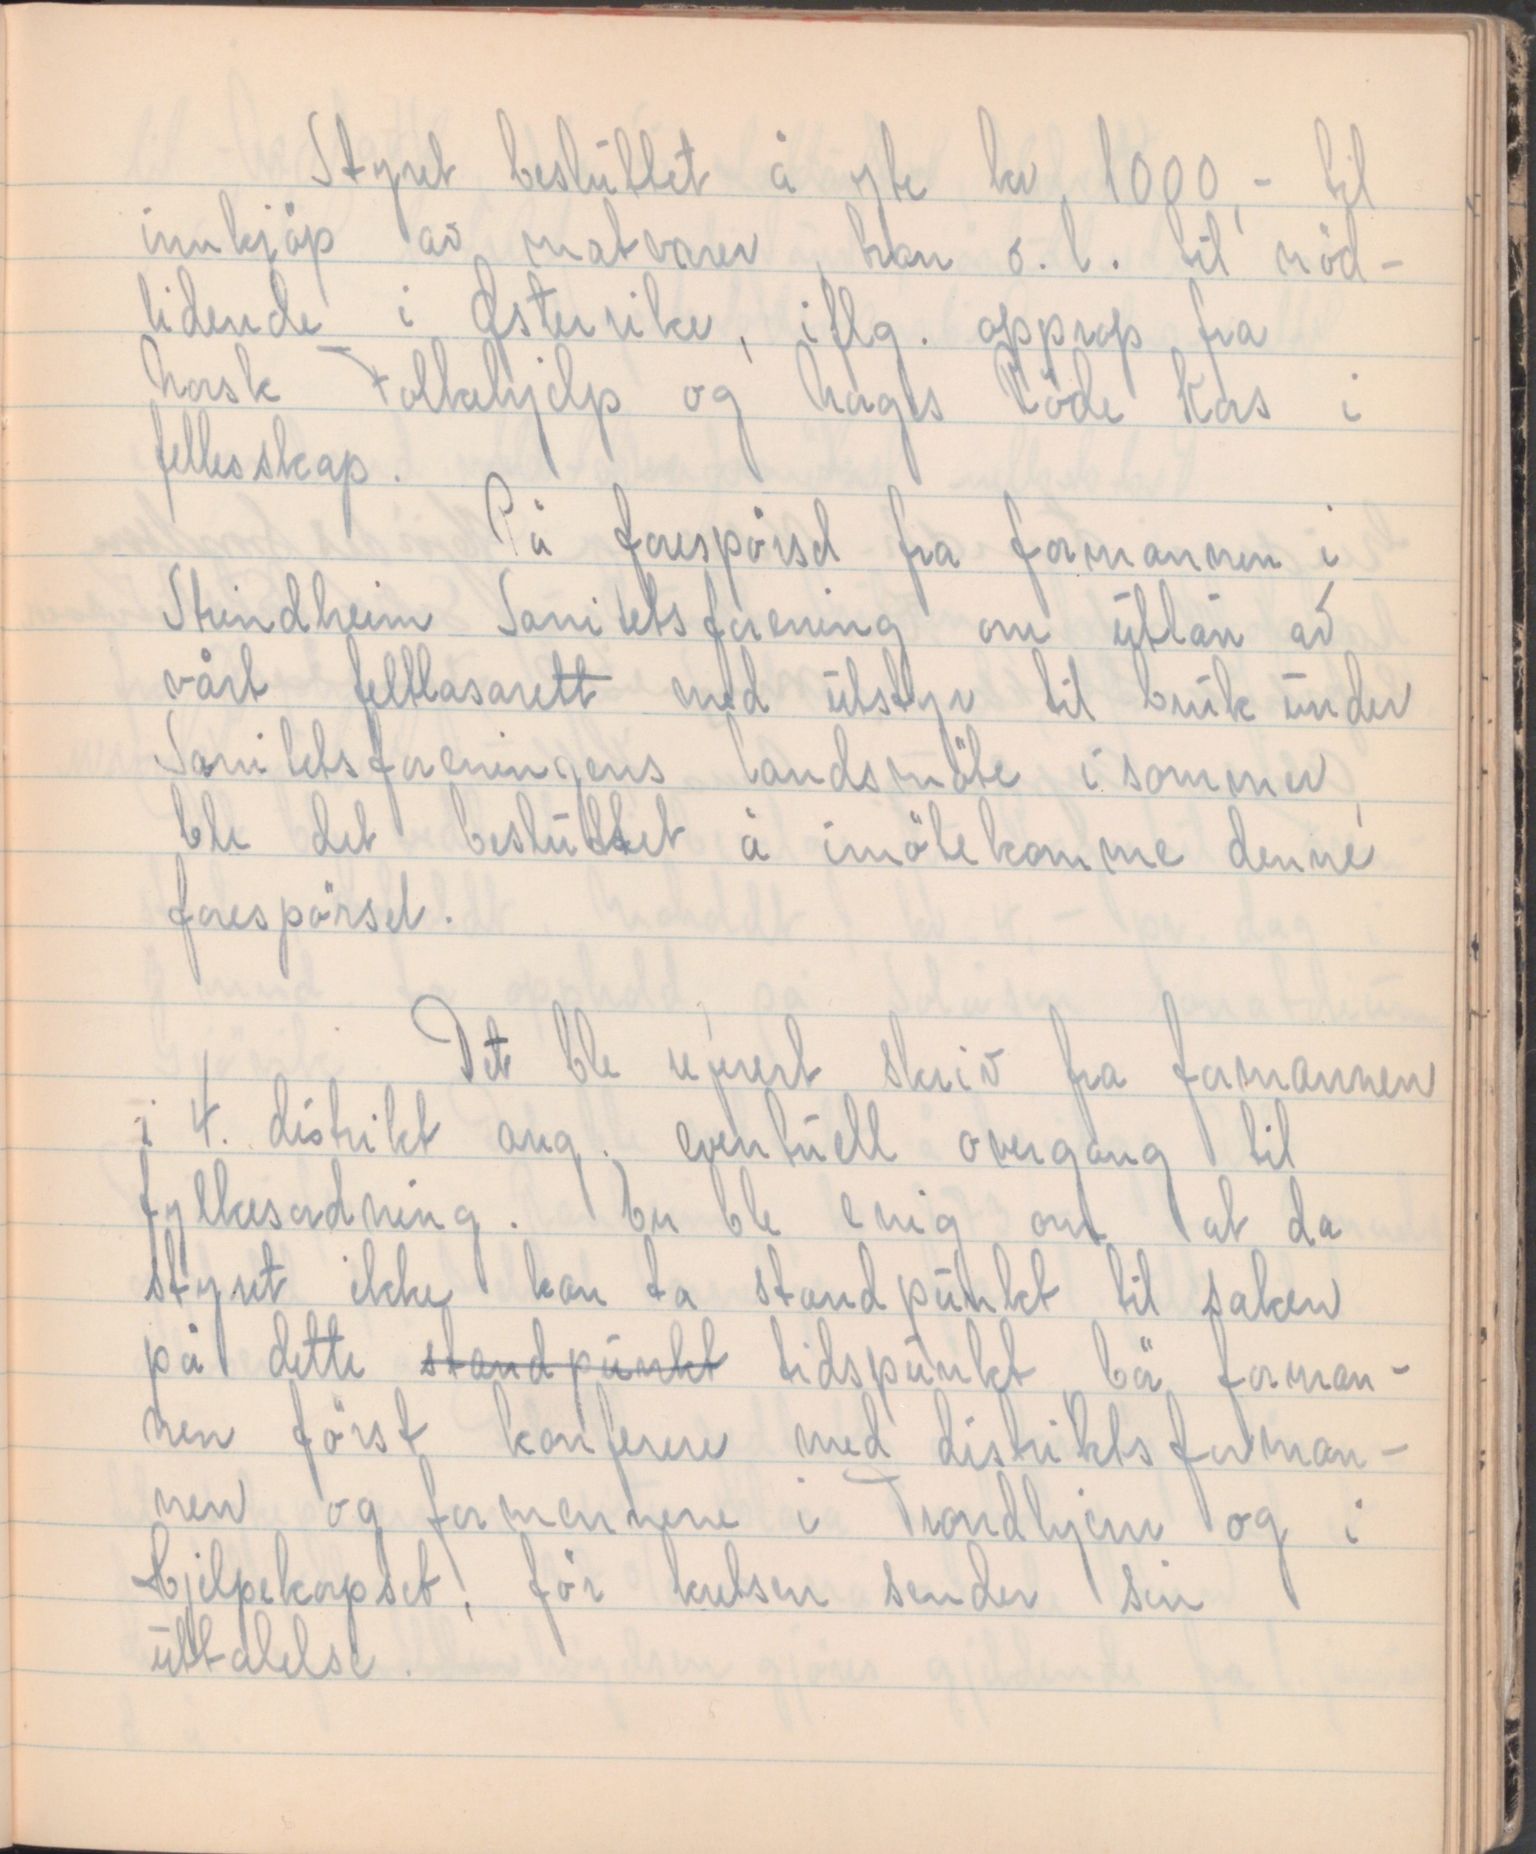 Styret besluttet å yte kr 1000,- til
innkjöp av matvarer, tran o.l. til nöd-
lidende i Østerrike, iflg. opprop fra
Norsk Folkehjelp og Norges Röde Kors i
fellesskap.
På forespörsel fra formannen i
Strindheim Sanitetsforening om utlån av
vårt feltlasarett med utstyr til bruk under
Sanitetsforeningens landsmöte i sommer,
ble det besluttet å imötekomme denne
forespörsel.
Det ble referert skriv fra formannen
i 4. distrikt ang. eventuell overgang til
fylkesordning. En ble enig om at da
styret ikke kan ta standpunkt til saken
på dette standpunkt tidspunkt, bör forman-
nen först konferere med distriktsforman-
nen og formennene i Trondhjem og i
Hjelpekorpset, för kretsen sender sin
uttalelse.